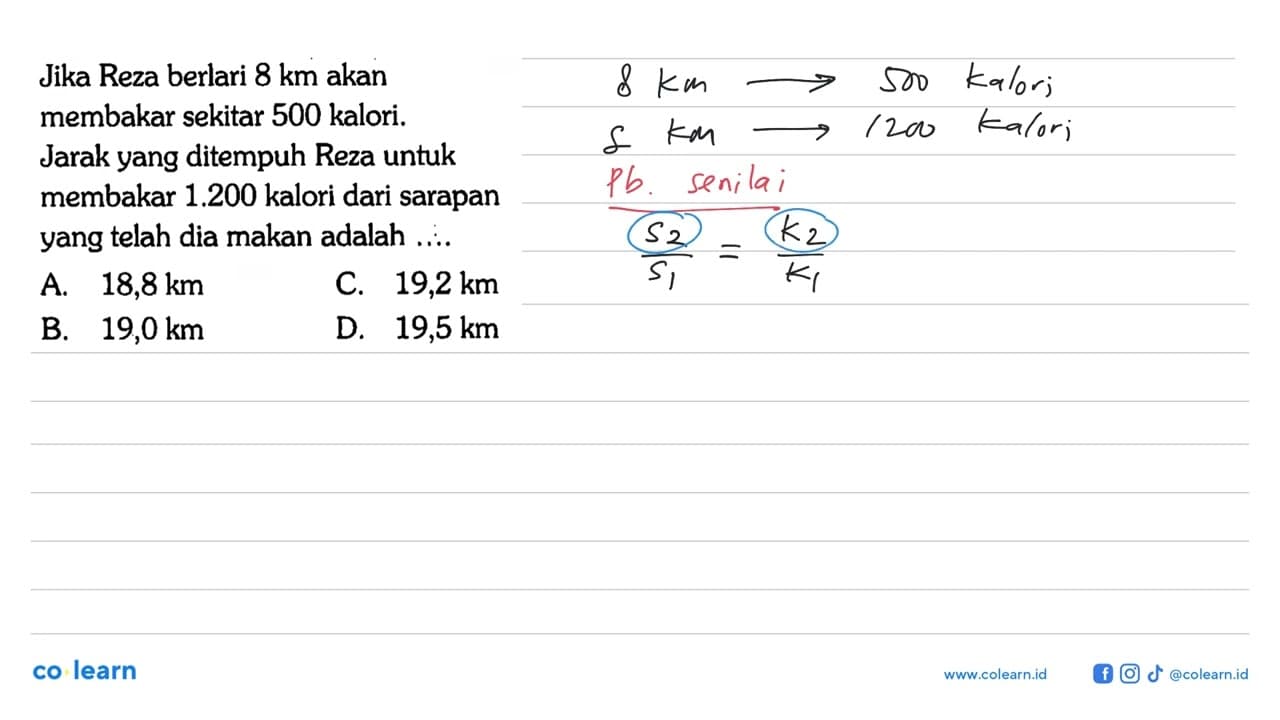 Jika Reza berlari 8 km akan
membakar sekitar 500 kalori.
Jarak yang ditempuh Reza untuk
membakar 1.200 kalori dari sarapan
yang telah dia makan adalah ....
A. 18,8 km C. 19,2 km
B. 19,0 km D. 19,5 km
8 km → 500 kalori
s km → 1200 kalori
Pb. senilai
s2/s1 = k2/k1
co learn
www.colearn.id @colearn.id